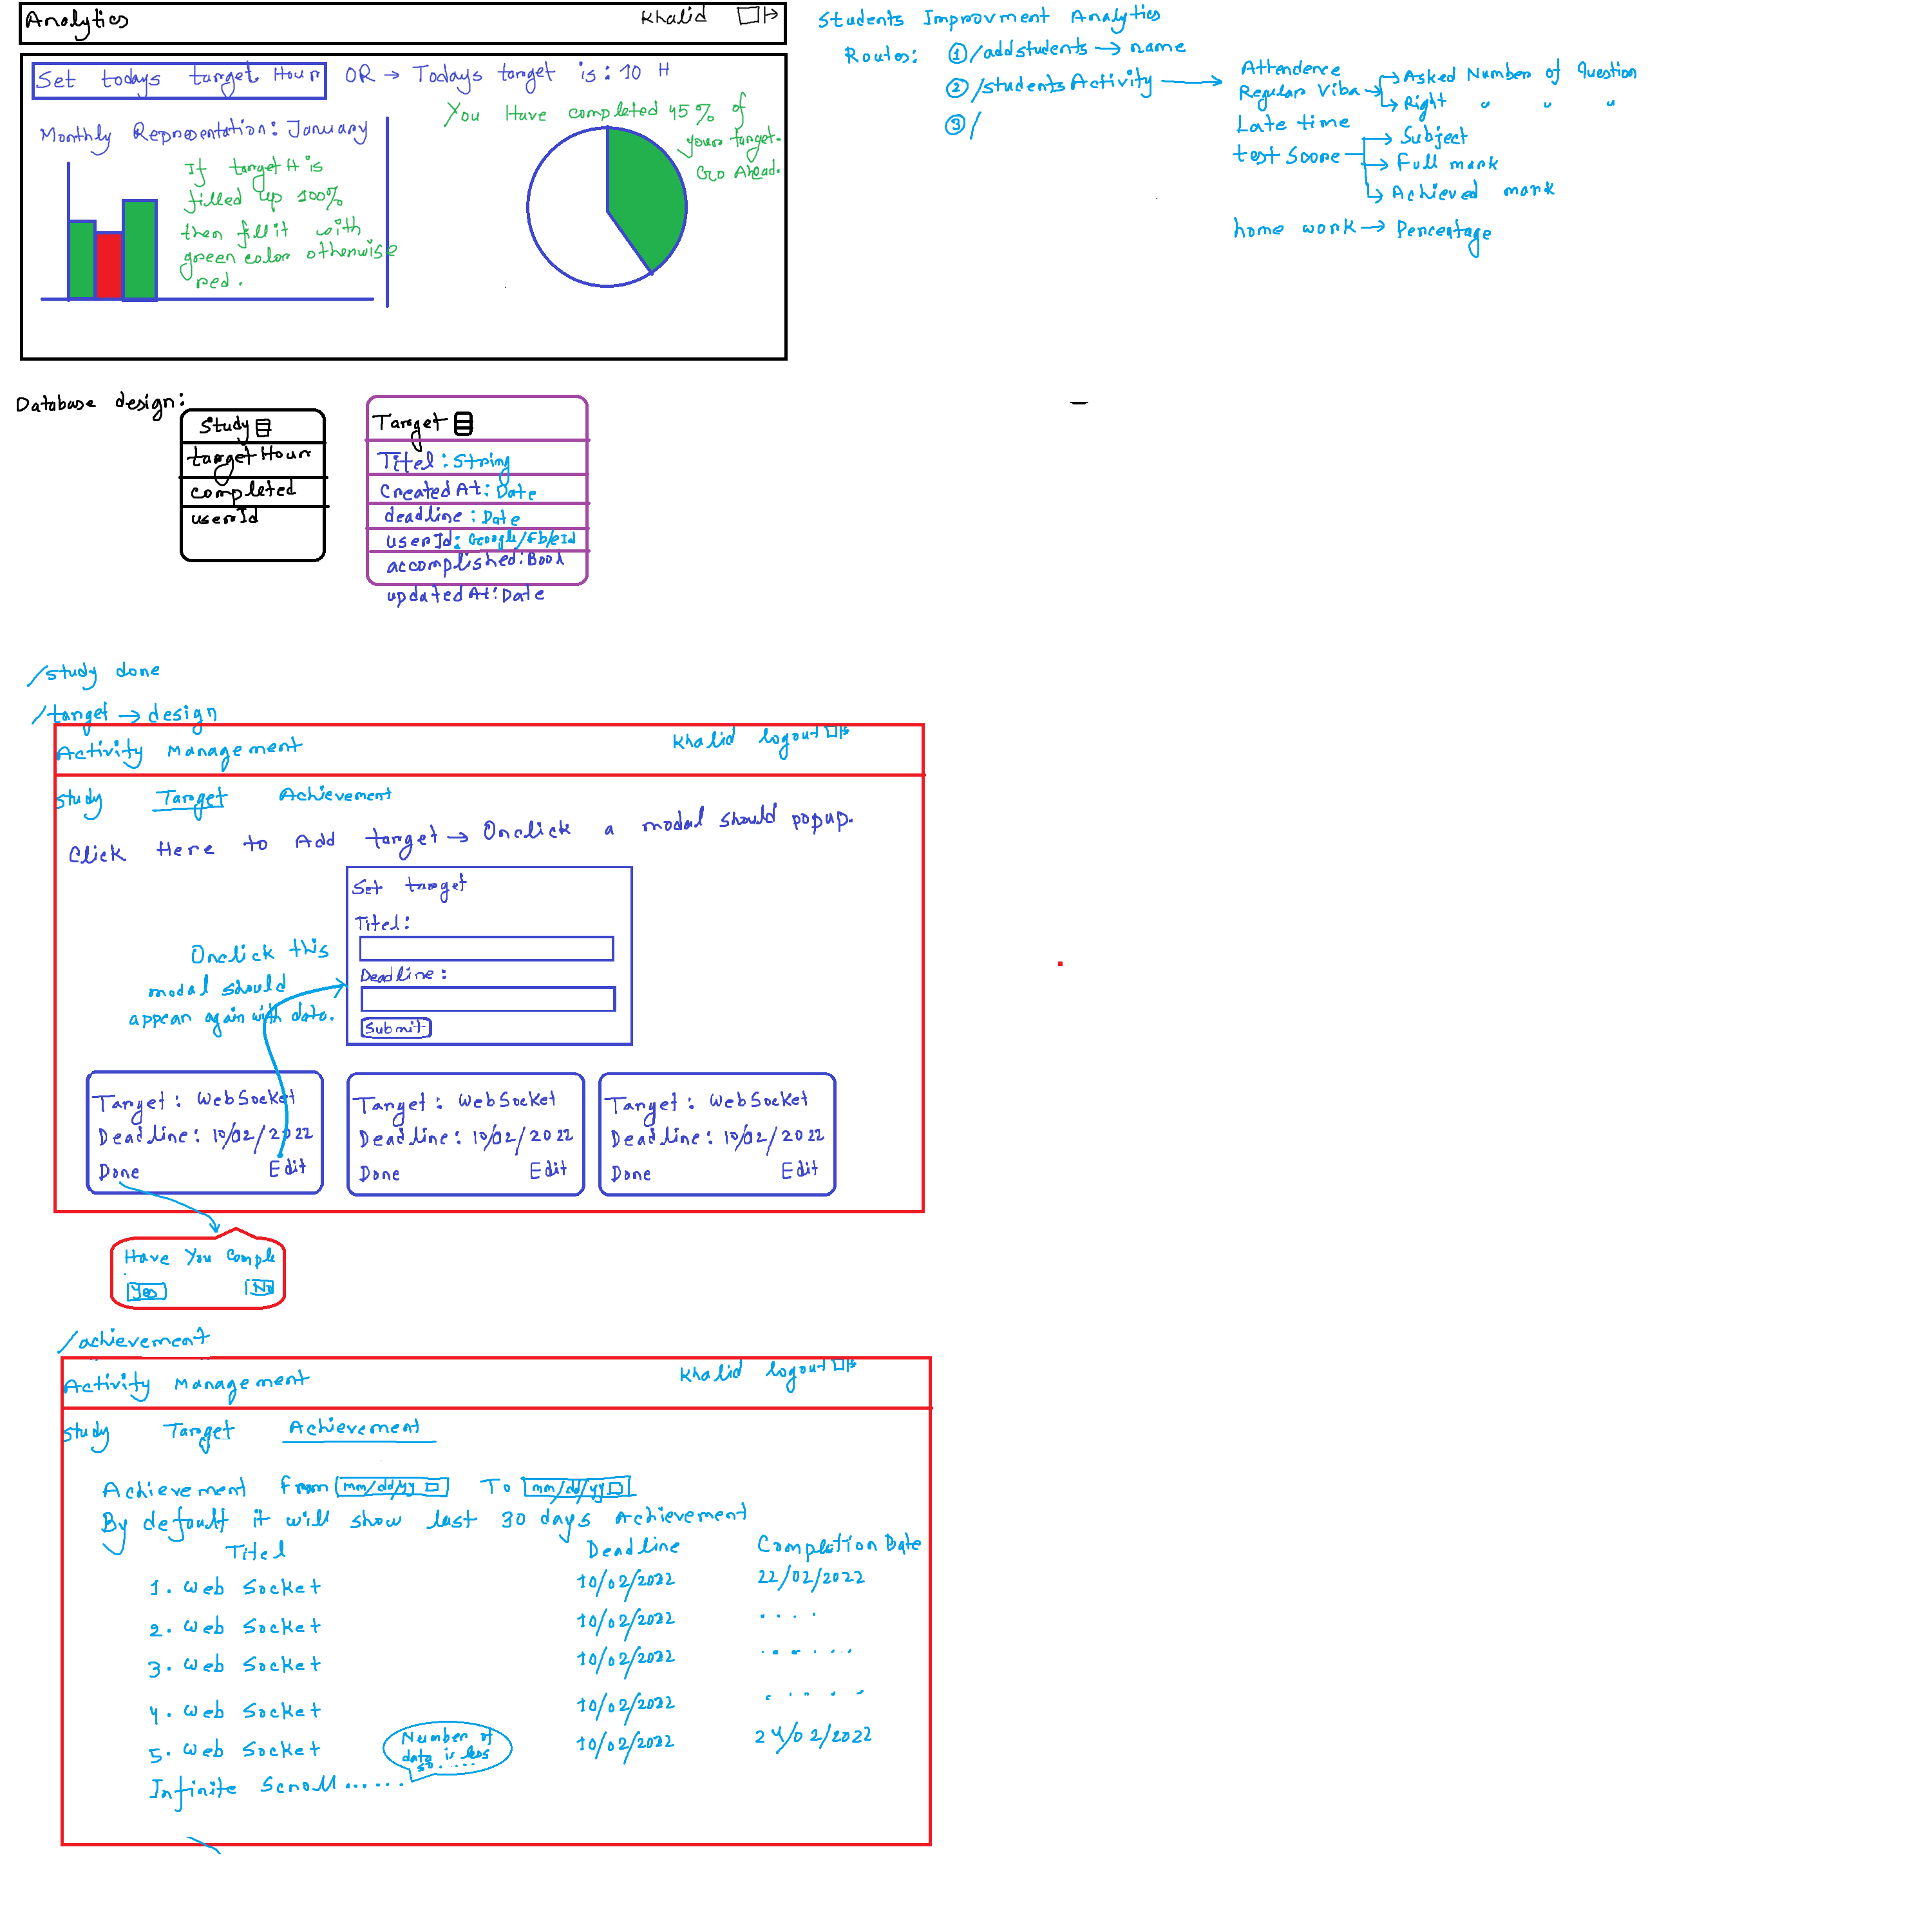 Analytics Khalid
Set todays target Hour OR → Todays target is: 10 H
You Have completed 45% of
your target.
Go Ahead.
Monthly Representation: January
If target H is
filled up 100%
then fill it with
green color otherwise
red.
Students Improvment Analytics
Routes: ① /addstudents → name
② /studentsActivity →
③ /
Attendence
Regular Viba → Asked Number of Question
→ Right " " "
Late time
test Score → Subject
→ Full mark
→ Achieved mark
home work → Percentage
Database design:
Study
targetHour
completed
userId
Target
Titel: String
CreatedAt: Date
deadline: Date
userId: Google/Fb/eId
accomplished: Bool
updatedAt: Date
/study done
/target → design
Activity Management Khalid logout
study Target Achievement
Click Here to Add target → Onclick a modal should popup.
Set target
Titel:
Deadline:
Submit
Onclick this
modal should
appear again with data.
Target: WebSocket
Deadline: 10/02/2022
Done Edit
Target: WebSocket
Deadline: 10/02/2022
Done Edit
Target: WebSocket
Deadline: 10/02/2022
Done Edit
Have You Comple
Yes No
/achievement
Activity Management Khalid logout
study Target Achievement
Achievement from mm/dd/yy To mm/dd/yy
By default it will show last 30 days Achievement
Titel Deadline Completion Date
1. Web Socket 10/02/2022 22/02/2022
2. Web Socket 10/02/2022 ....
3. Web Socket 10/02/2022 ......
4. Web Socket 10/02/2022 .....
5. Web Socket 10/02/2022 24/02/2022
Number of
data is less
so.....
Infinite Scroll......